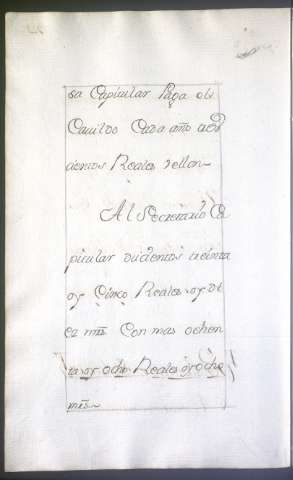 sa Capitular Paga el
Cavildo Cada año
cientos Reales vellon
Al Secretario Ca
pitular ducientos treinta
y Cinco Reales y di
ez mrs Con mas ochen
ta y ocho Reales y ocho
mrs